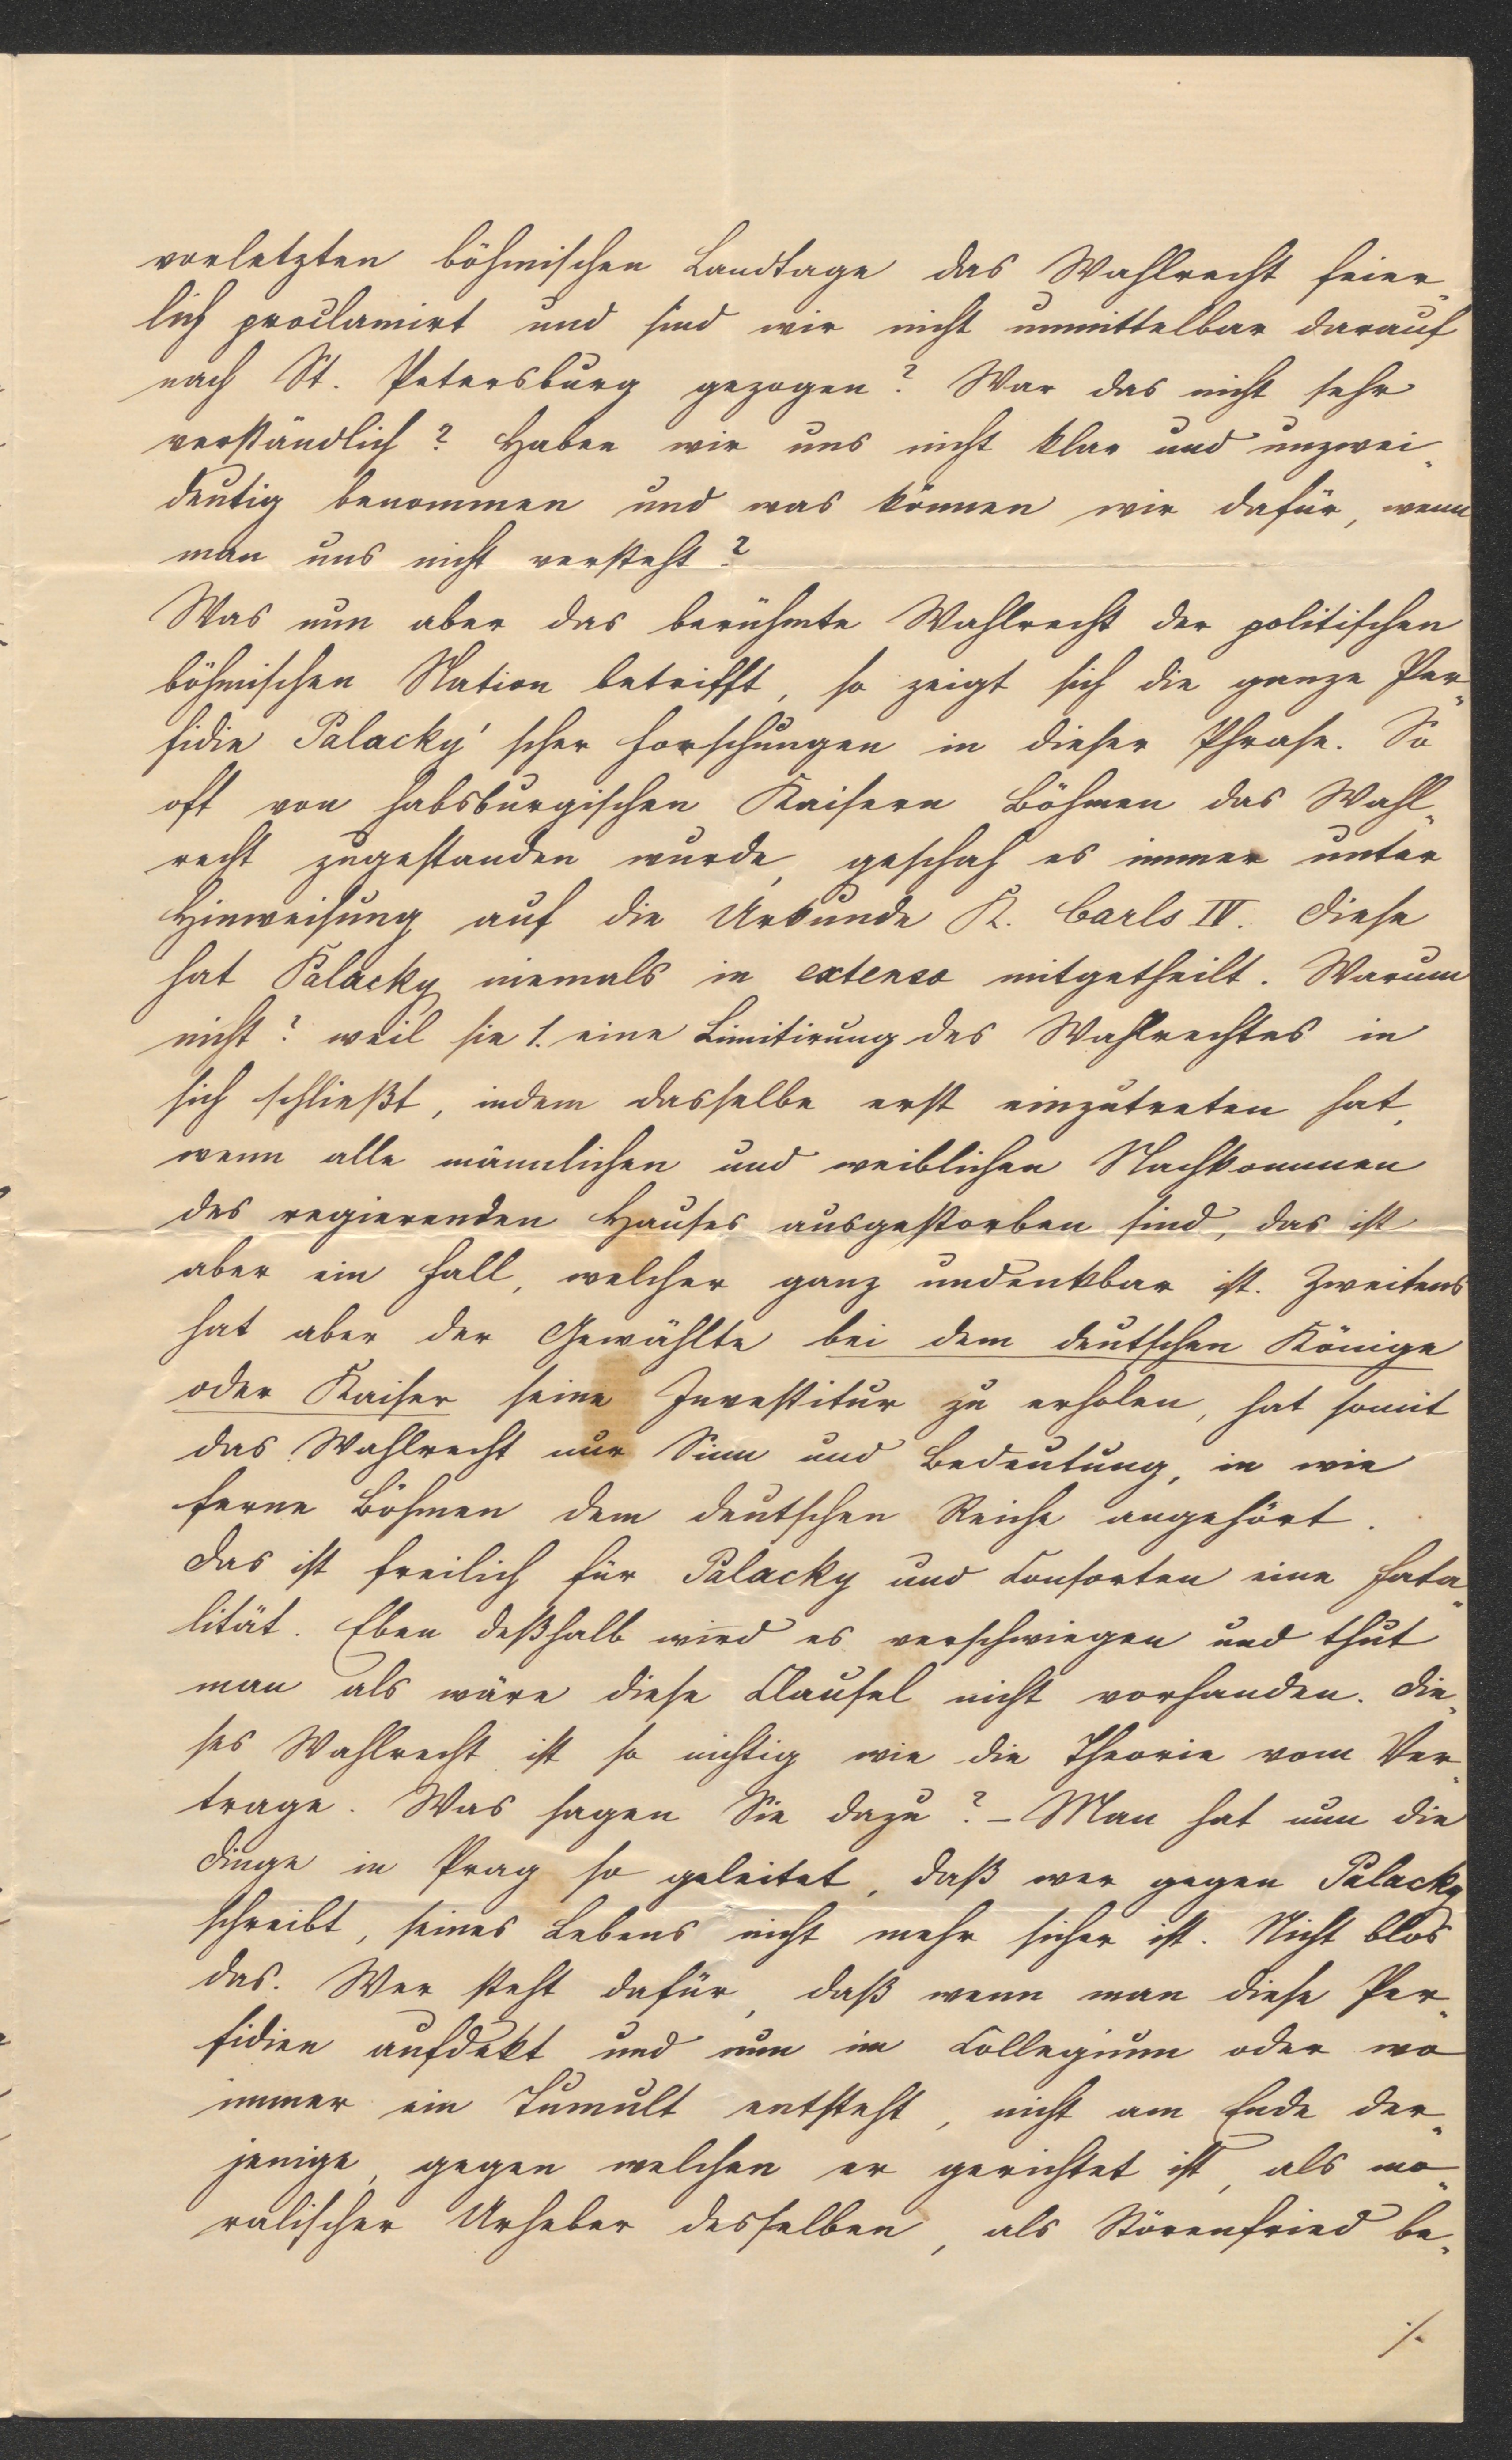 vorletzten böhmischen Landtage das Wahlrecht feier„
lich proclamirt und sind wir nicht unmittelbar darauf
nach St. Petersburg gezogen? War das nicht sehr
verständlich? Haben wir uns nicht klar und unzwei„
deutig benommen und was können wir dafür, wenn
man uns nicht versteht?
Was nun aber das berühmte Wahlrecht der politischen
böhmischen Nation betrifft, so zeigt sich die ganze Per„
fidie Palacky'scher Forschungen in dieser Phrase. So
oft von habsburgischen Kaisern Böhmen das Wahl„
recht zugestanden wurde, geschah es immer unter
Hinweisung auf die Urkunde K. Carls IV. Diese
hat Palacky niemals in extenso mitgetheilt. Warum
nicht? weil sie 1. eine Limitirung des Wahlrechtes in
sich schließt, indem dasselbe erst einzutreten hat,
wenn alle männlichen und weiblichen Nachkommen
des regierenden Hauses ausgestorben sind, das ist
aber ein Fall, welcher ganz undenkbar ist. Zweitens
hat aber der Gewählte bei dem deutschen Könige
oder Kaiser seine Investitur zu erholen, hat somit
das Wahlrecht nur Sinn und Bedeutung, in wie
ferne Böhmen dem deutschen Reiche angehört.
Das ist freilich für Palacky und Consorten eine Fata„
lität. Eben deßhalb wird es verschwiegen und thut
man als wäre diese Clausel nicht vorhanden. Die„
ses Wahlrecht ist so nichtig wie die Theorie vom Ver„
trage. Was sagen Sie dazu? – Man hat nun die
Dinge in Prag so geleitet, daß wer gegen Palacky
schreibt, seines Lebens nicht mehr sicher ist. Nicht blos
das. Wer steht dafür, daß wenn man diese Per„
fidien aufdekt und nun im Collegium oder wo
immer ein Tumult entsteht, nicht am Ende der„
jenige, gegen welchen er gerichtet ist, als mo„
ralischer Urheber desselben, als Störenfried be„
./.